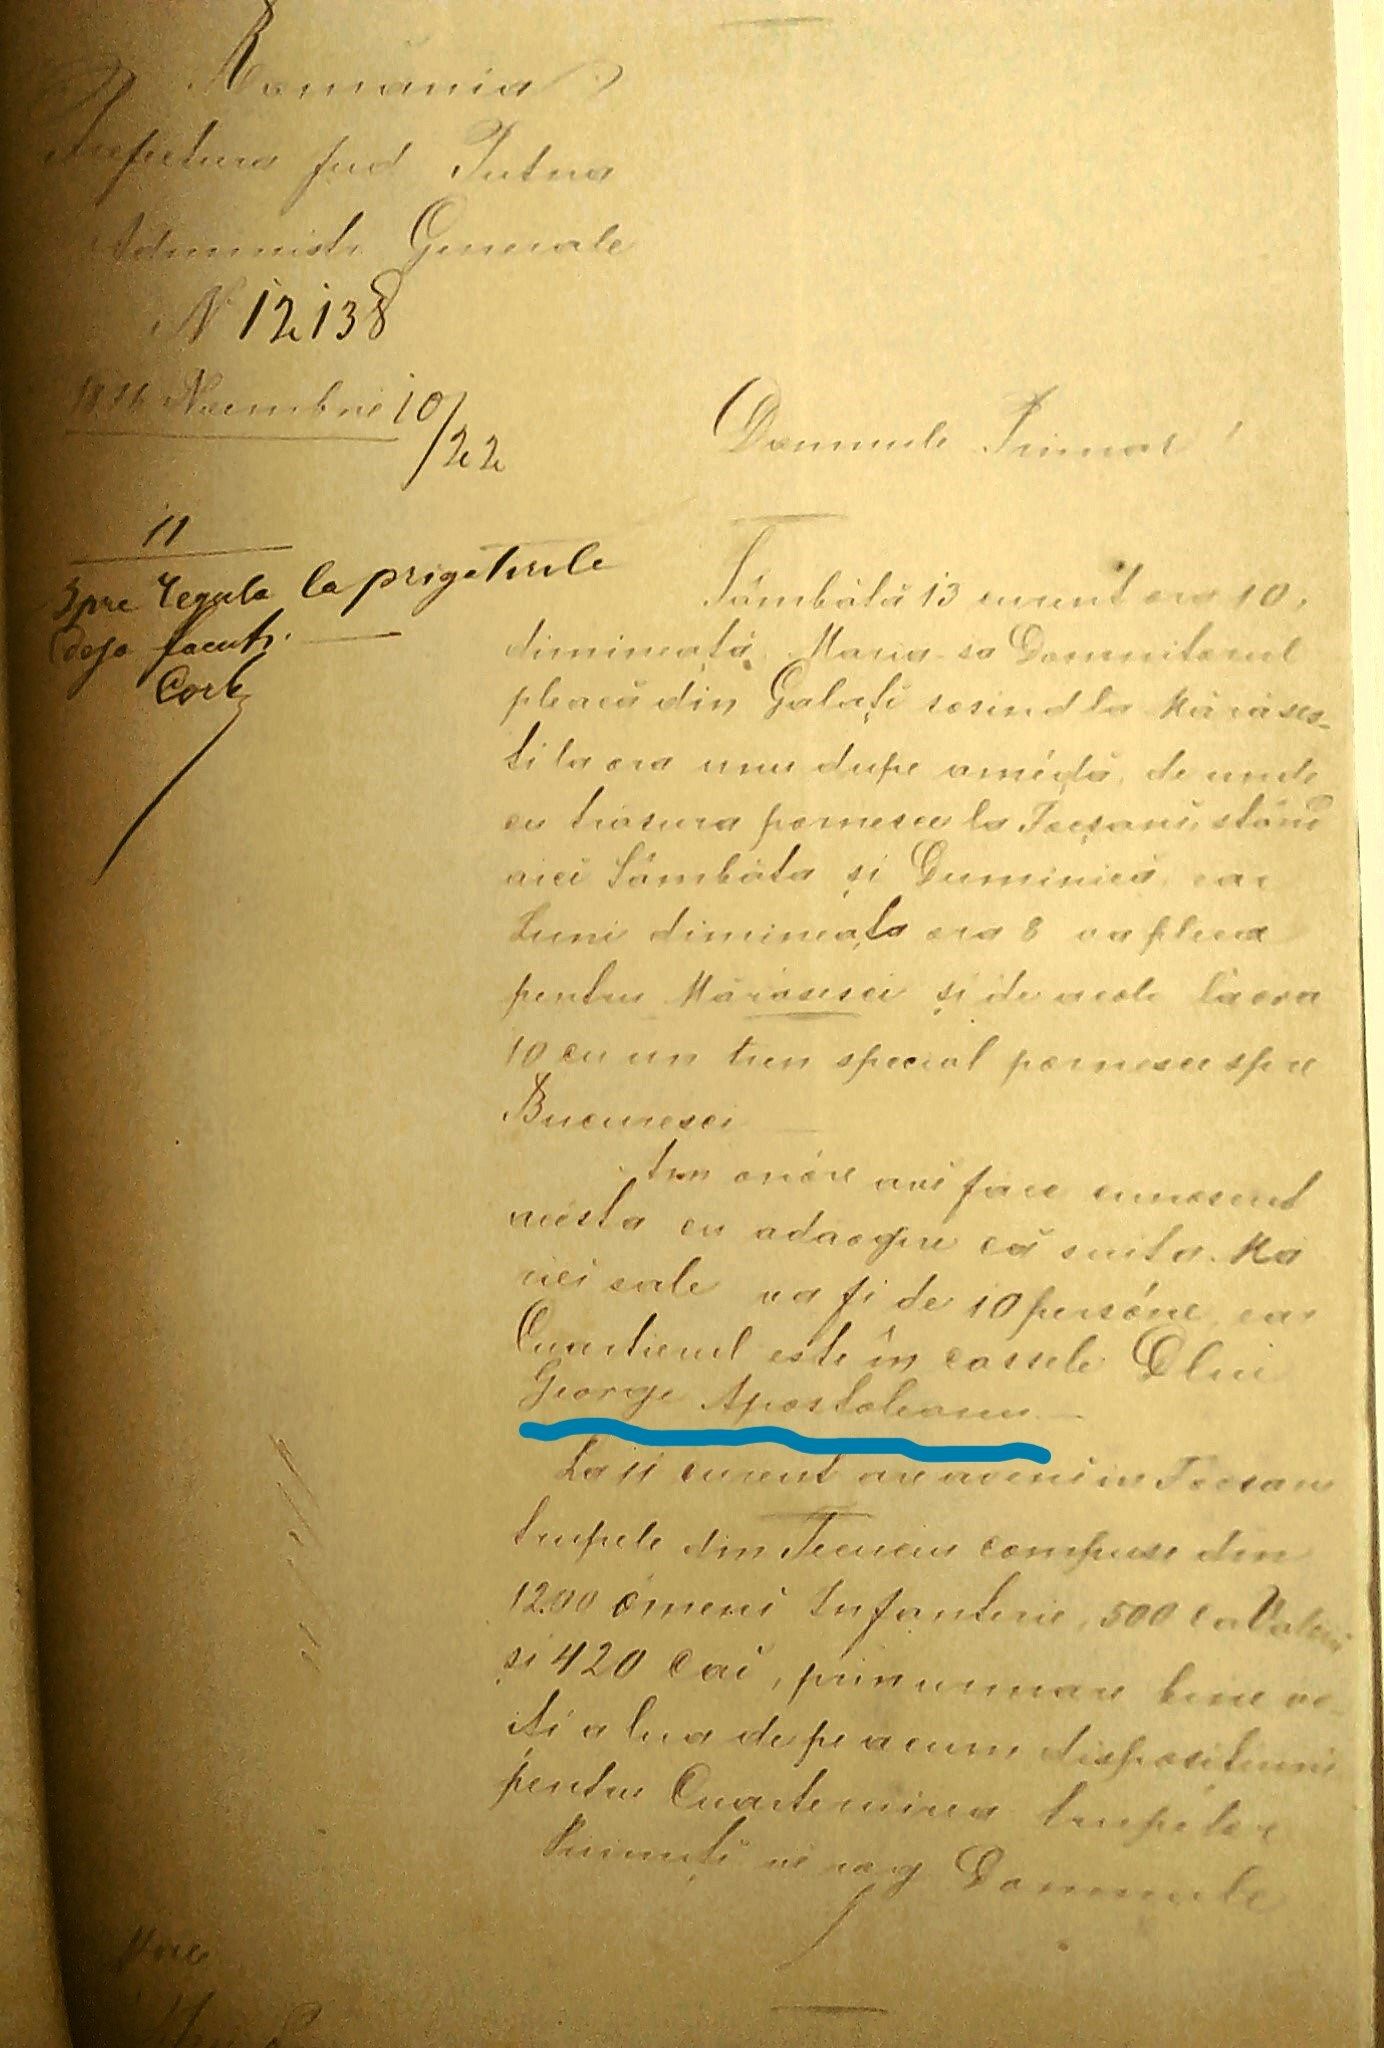 România
Prefectura Jud Putna
Administr. Generale
N 12138
Noembrie 10/22
Domnule Primar!
11
Spre regula la prigatirile
deja facute.
Sâmbătă 13 curent ora 10,
dimineață, Maria sa Domnitorul
pleacă din Galați sosind la Mărășes-
ti la ora unu dupe amédă, de unde
cu trasura pornesce la Focșani, stând
aici Sâmbăta și Duminică, ear
Luni dimineața ora 8 va pleca
pentru Mărășesci și de acole la ora
10 cu un tren special pornesce spre
Bucuresci
Am onóre avĕ face cunoscut
acésta cu adaogire că suita Mă
riei sale va fi de 10 persóne, ear
Cuartierul este în cassele Dlui
George Apostoleanu —
La 11 curent are aveni in Focsani
trupele din Tecuciu compuse din
1200 ómeni Infanterie, 500 Cavalerie
și 420 Cai, prin urmare bine vo-
iti a lua de pe acum dispositiuni
pentru Cuartiruirea trupelor
Primiți vĕ rog Domnule